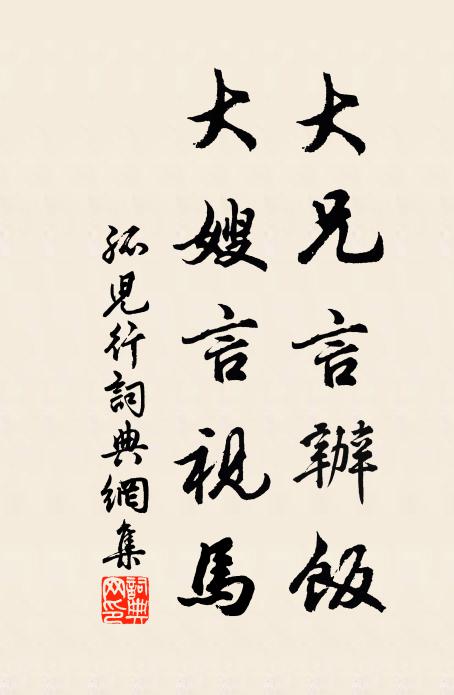 大兄言辦飯
大嫂言視馬
孤兒行詞典網集
詞典網印